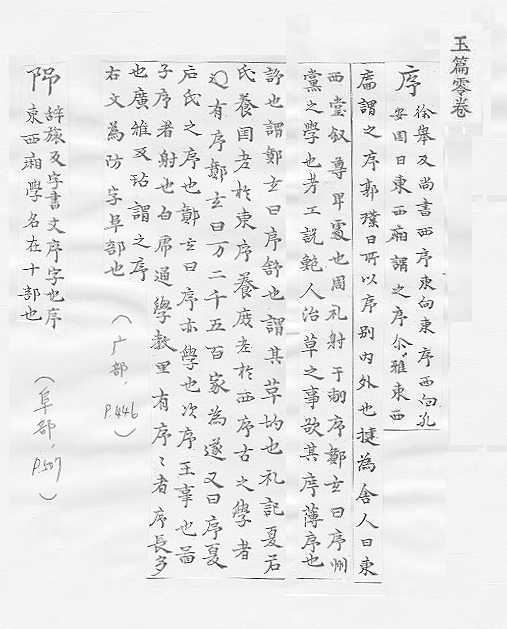 玉篇零卷
序
徐舉反尚書西序東向東序西向孔
安囯曰東西廂謂之序尒雅東西
廧謂之序郭璞曰所以序别内外也揵為舎人曰東
西堂叙尊卑處也周礼射于序鄭玄曰序州
黨之學也考工記鮑人治草之事欲其序薄序也
許也謂鄭玄曰序舒也謂其草均也礼記夏后
氏養囯老於東序養庻老於西序古之學者
有序鄭玄曰万二千五百家為遂又曰序夏
后氏之序也鄭玄曰序亦學也次序王事也啚
子序者射也白席通學教里有序〻者序長多
也廣雅反玷謂之序
右文為防字阜部也
(广部
P.446)
䧛
辞旅反字書文序字也序
東西廂學名在十部也
(阜部,
P.507)